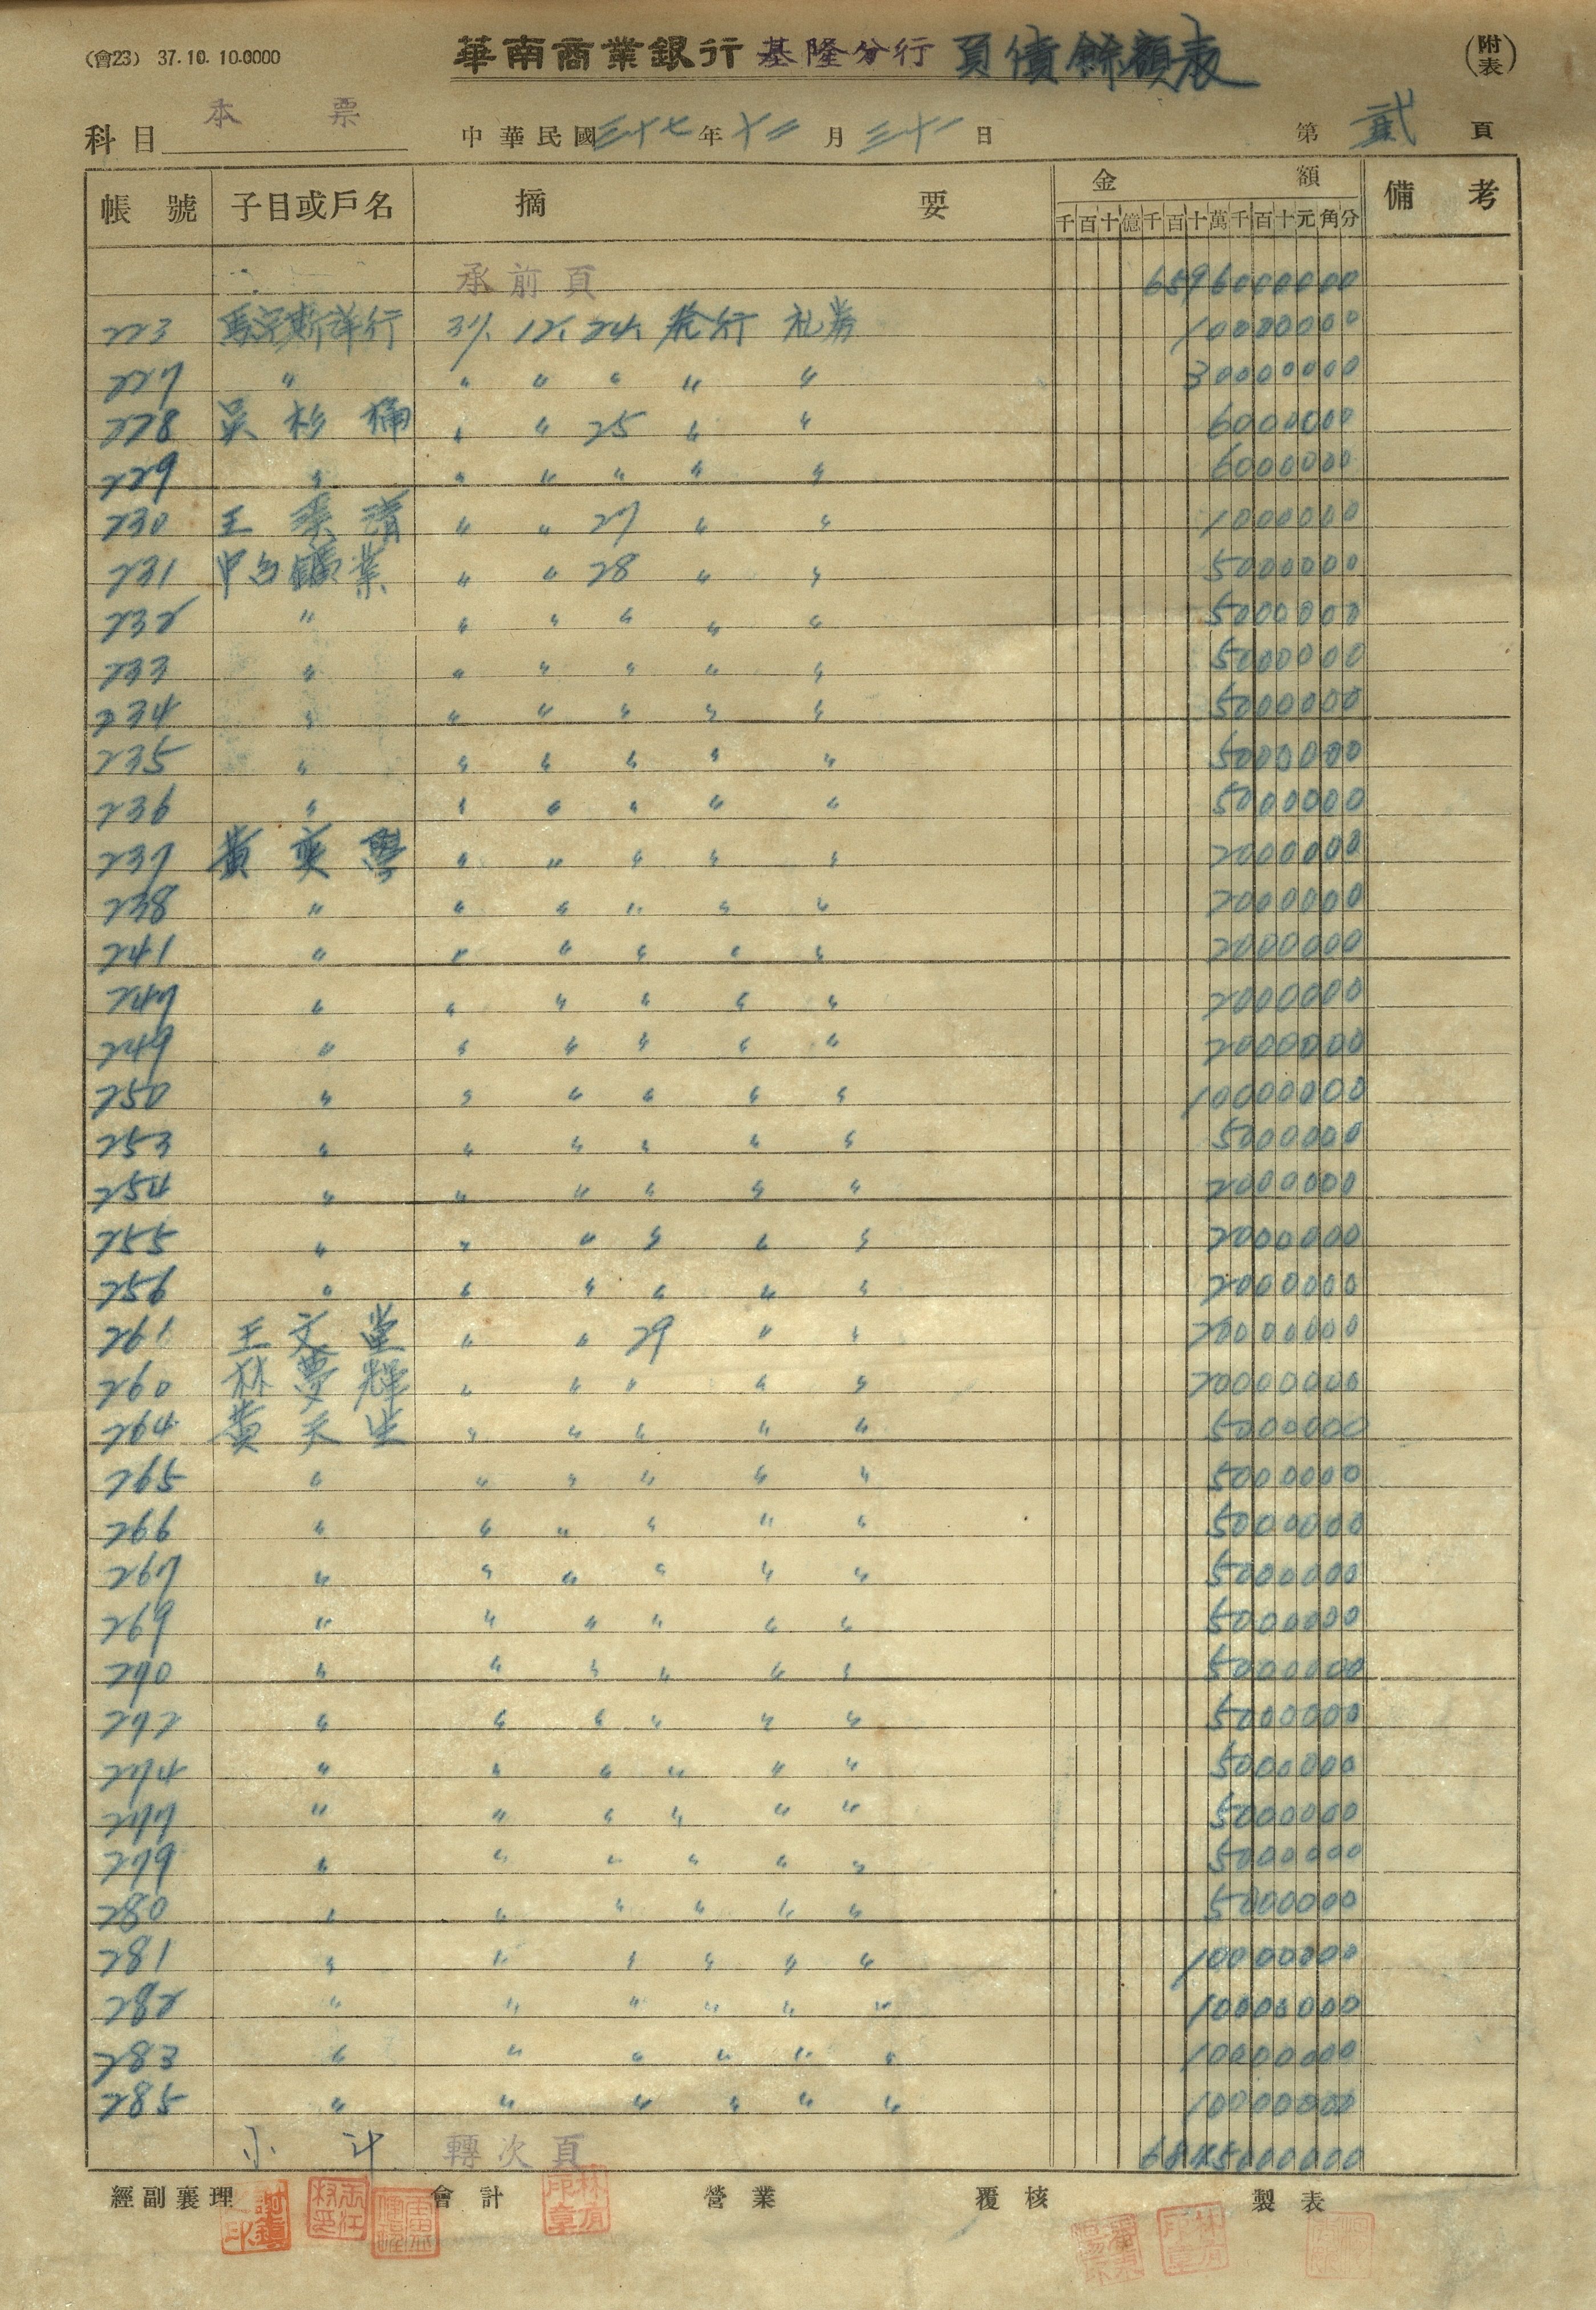 (會23) 37.10.10.0000 華南商業銀行 基隆分行 負債餘額表 (附表)
科目 本票 中華民國三十七年十二月三十一日 第貳頁
帳號 子目或戶名 摘要 金額 備考
千百十億千百十萬千百十元角分
承前頁 65960000000
223 馬字斯洋行 37. 12. 24. 發行 礼券 10000000
227 〃 〃 〃 〃 〃 〃 30000000
228 吳杉桶 〃 〃 25 〃 〃 6000000
229 〃 〃 〃 〃 〃 〃 6000000
230 王 清 〃 〃 27 〃 〃 1000000
231 中台鑛業 〃 〃 28 〃 〃 5000000
232 〃 〃 〃 〃 〃 〃 5000000
233 〃 〃 〃 〃 〃 〃 5000000
234 〃 〃 〃 〃 〃 〃 5000000
235 〃 〃 〃 〃 〃 〃 5000000
236 〃 〃 〃 〃 〃 〃 5000000
237 黃奕 〃 〃 〃 〃 〃 2000000
238 〃 〃 〃 〃 〃 〃 2000000
241 〃 〃 〃 〃 〃 〃 2000000
247 〃 〃 〃 〃 〃 〃 2000000
249 〃 〃 〃 〃 〃 〃 2000000
250 〃 〃 〃 〃 〃 〃 10000000
253 〃 〃 〃 〃 〃 〃 5000000
254 〃 〃 〃 〃 〃 〃 2000000
255 〃 〃 〃 〃 〃 〃 2000000
256 〃 〃 〃 〃 〃 〃 2000000
261 王文堂 〃 〃 29 〃 〃 20000000
260 林夢輝 〃 〃 〃 〃 〃 20000000
264 黃天生 〃 〃 〃 〃 〃 5000000
265 〃 〃 〃 〃 〃 〃 5000000
266 〃 〃 〃 〃 〃 〃 5000000
267 〃 〃 〃 〃 〃 〃 5000000
269 〃 〃 〃 〃 〃 〃 5000000
270 〃 〃 〃 〃 〃 〃 5000000
272 〃 〃 〃 〃 〃 〃 5000000
274 〃 〃 〃 〃 〃 〃 5000000
277 〃 〃 〃 〃 〃 〃 5000000
279 〃 〃 〃 〃 〃 〃 5000000
280 〃 〃 〃 〃 〃 〃 5000000
281 〃 〃 〃 〃 〃 〃 10000000
282 〃 〃 〃 〃 〃 〃 10000000
283 〃 〃 〃 〃 〃 〃 10000000
285 〃 〃 〃 〃 〃 〃 10000000
小計 轉次頁
經副襄理 會計 營業 覆核 製表